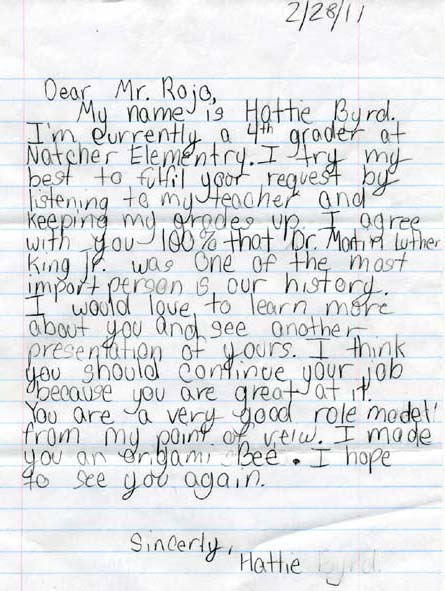 2/28/11
Dear Mr. Rojo,
My name is Hattie Byrd.
I'm currently a 4th grader at
Natcher Elementry. I try my
best to fulfil your request by
listening to my teacher and
keeping my grades up. I agree
with you 100% that Dr. Martin Luther
King jr. was one of the most
import person is our history.
I would love to learn more
about you and see another
presentation of yours. I think
you should continue your job
because you are great at it.
You are a very good role model!
from my point of veiw. I made
you an origami Bee. I hope
to see you again.
Sincerly,
Hattie Byrd.